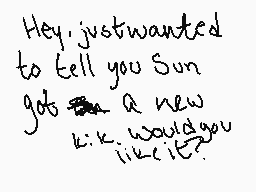 Hey, just wanted
to tell you Sun
got a new
kik. would you
like it?